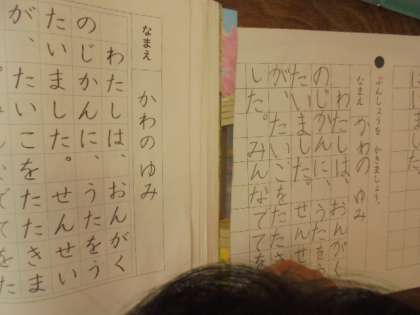 なまえ かわの ゆみ
わたしは、おんがく
のじかんに、うたをう
たいました。せんせい
が、たいこをたたきま
ぶんしょうを かきましょう。
なまえ かわの ゆみ
わたしは、おんがく
のじかんに、うたを
たいました。せんせ
が、たいこをたたき
した。みんなでてを